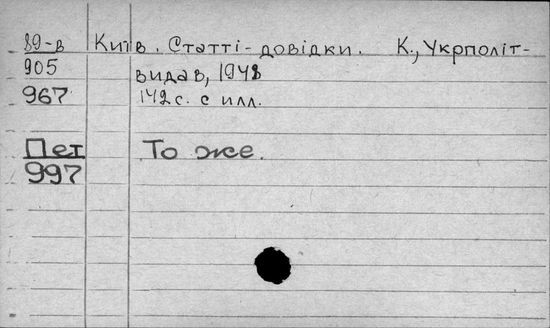 89-в Київ. Статті-довідки. К., Укрполіт-
905 видав, 1948
967 142 с. с илл.
Пет То же.
997